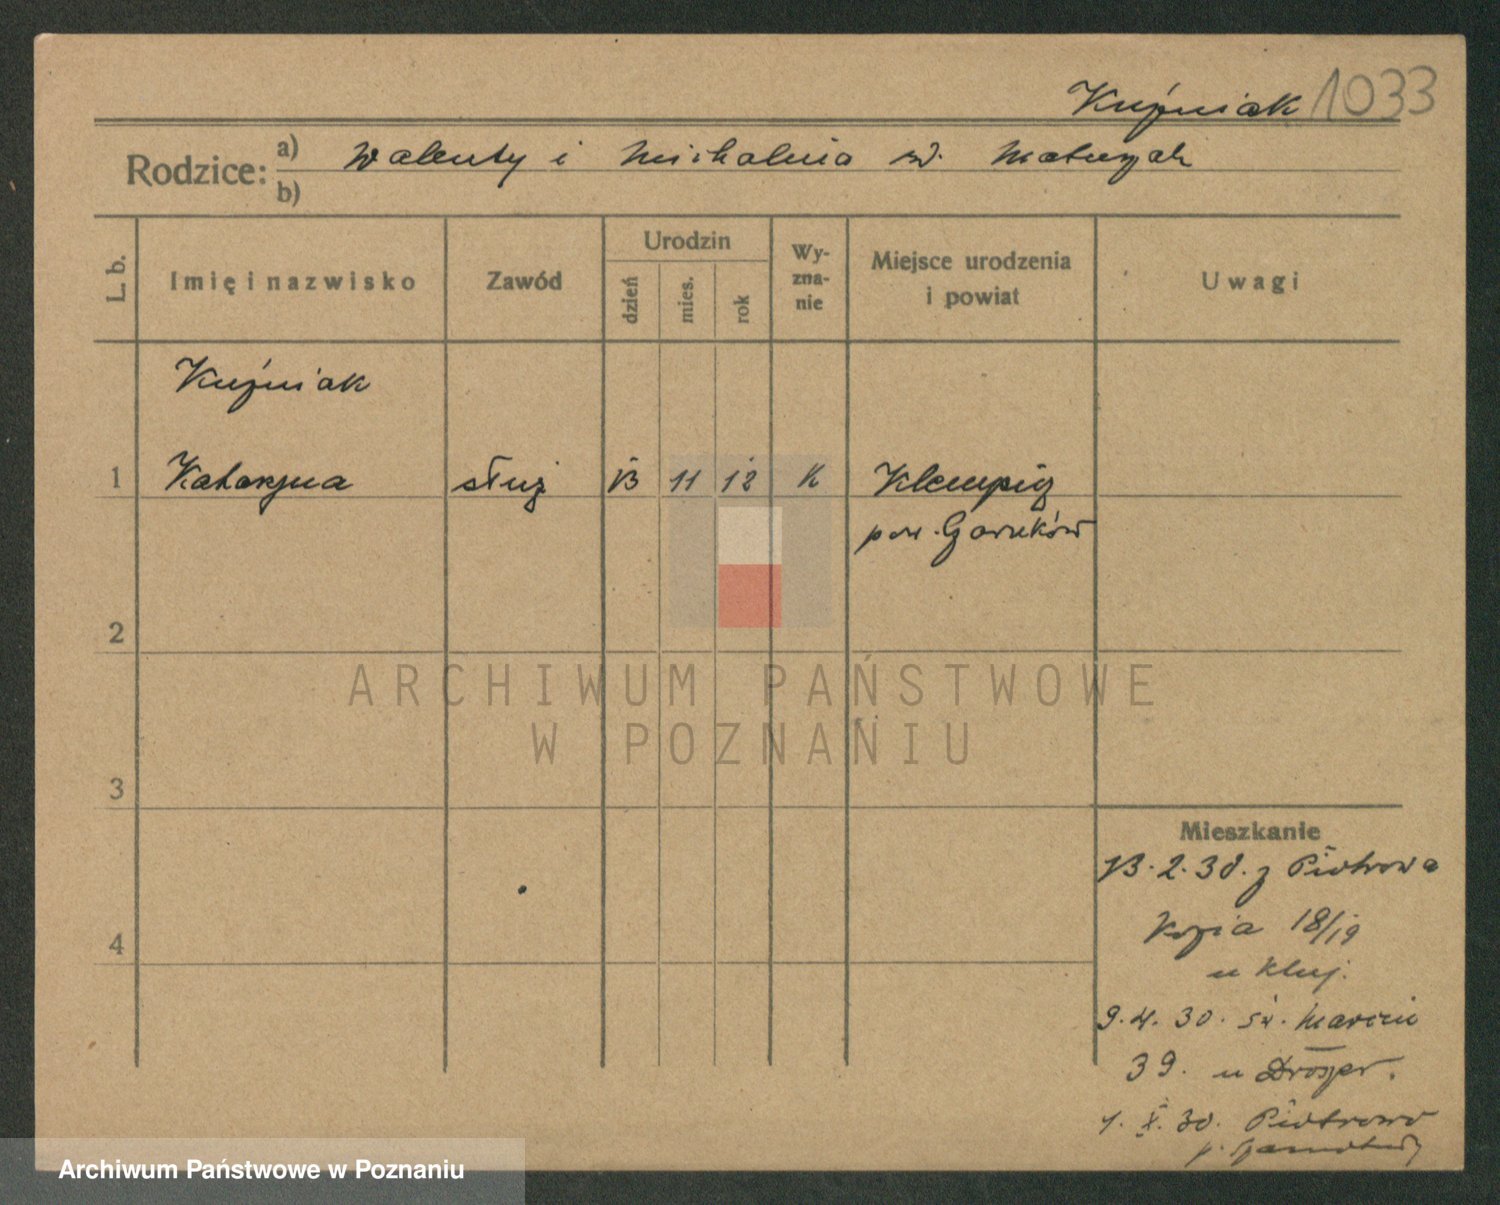 Kuźniak 1033
Rodzice: a) Walenty i Michalina
b)
L. b.
Imię i nazwisko
Zawód
Urodzin
dzień
mies.
rok
Wy-
zna-
nie
Miejsce urodzenia
i powiat
Uwagi
Kuźniak
1 Katarzyna służ 13 11 12 K Klempicz
pow.
2
3
4
ARCHIWUM PAŃSTWOWE
W POZNANIU
Mieszkanie
13.2.30. z Piotrowa
18/19
u Kluj.
9.4.30. św. Marcin
39. u
1. X. 30. Piotrowo
p.
Archiwum Państwowe w Poznaniu